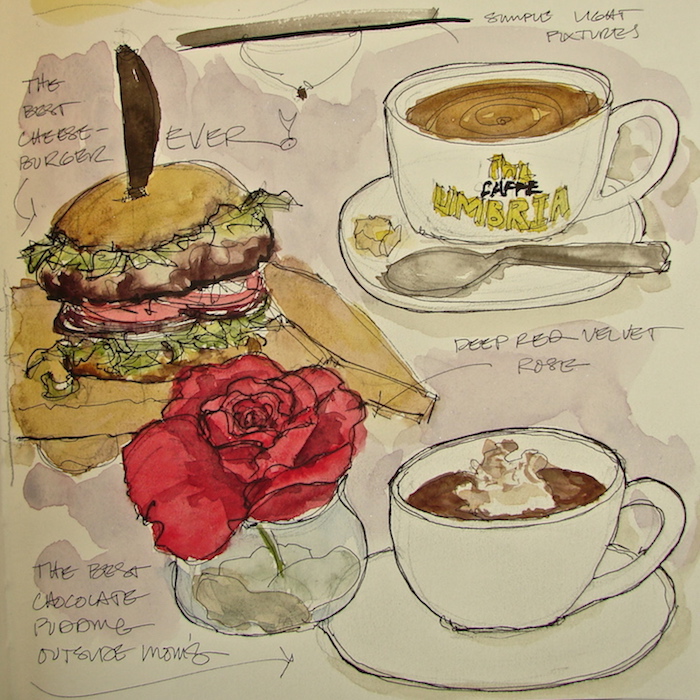 SIMPLE LIGHT
FIXTURES
THE
BEST
CHEESE-
BURGER
EVER!
CAFFE
UMBRIA
DEEP RED VELVET
ROSE
THE BEST
CHOCOLATE
PUDDING
OUTSIDE MOM'S